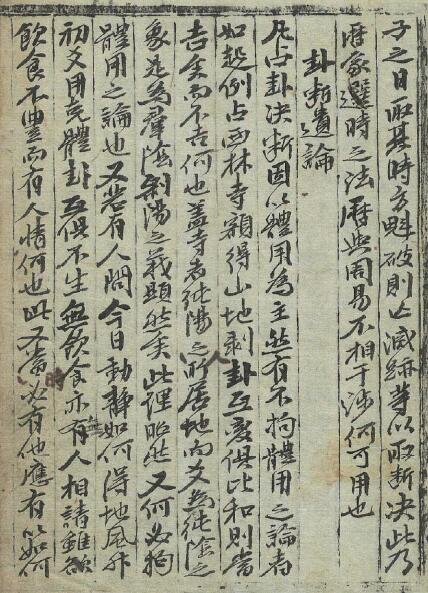 子之日取其時方魁破則亡滅跡等以取断决此乃
厤家選時之法厤與周易不相干涉何可用也
卦断遺論
凡占卦决断固以體用為主然有不拘體用之論者
如起例占西林寺額得山地剥卦互变俱比和則當
吉矣而不吉何也盖寺者純陽之人所居地而爻為純陰之
象是為羣陰剥陽之義顯然矣此理昭然又何必拘
體用之論也又若有人問今日動静如何得地風升
初爻用克體卦互俱不生無飲食亦有人相請雖
飲食不豊而有人情何也此又當時必有他應有以如何